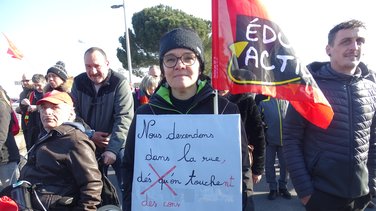 ÉDU
ACTI
Nous descendons
dans la rue,
dés qu'on touchent
des cons